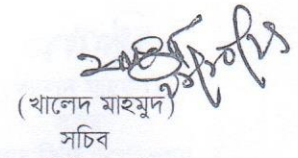 (খালেদ মাহমুদ)
সচিব